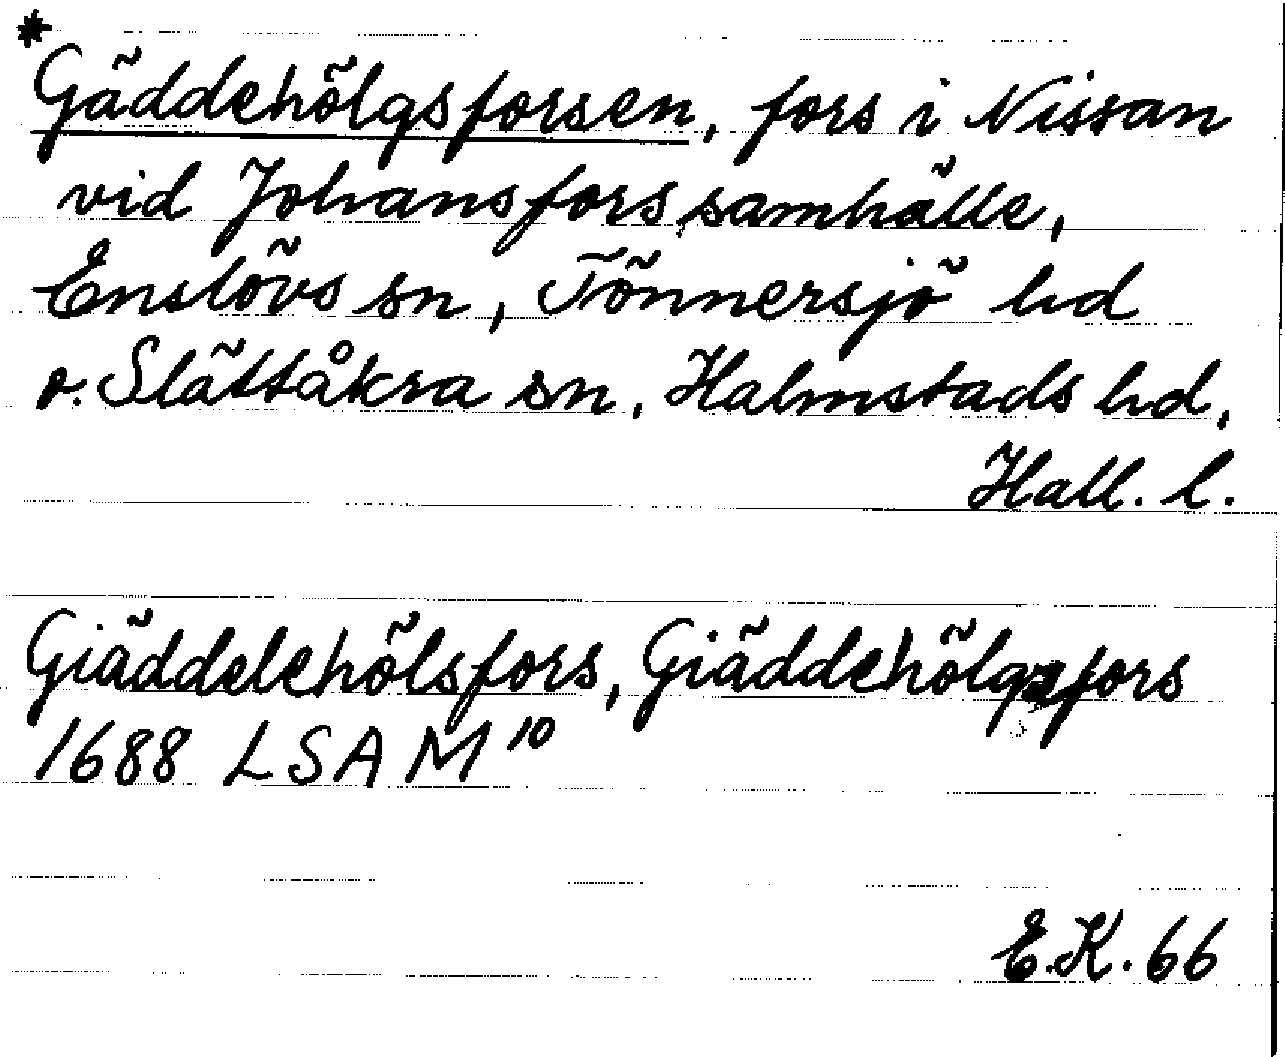 *
Gäddehölgsforsen, fors i Nissan
vid Johansfors samhälle,
Enslövs sn, Tönnersjö hd
o. Slättåkra sn, Halmstads hd,
Hall. l.
Giäddelehölsfors, Giäddehölgsfors
1688 LSA M 10
E.K. 66